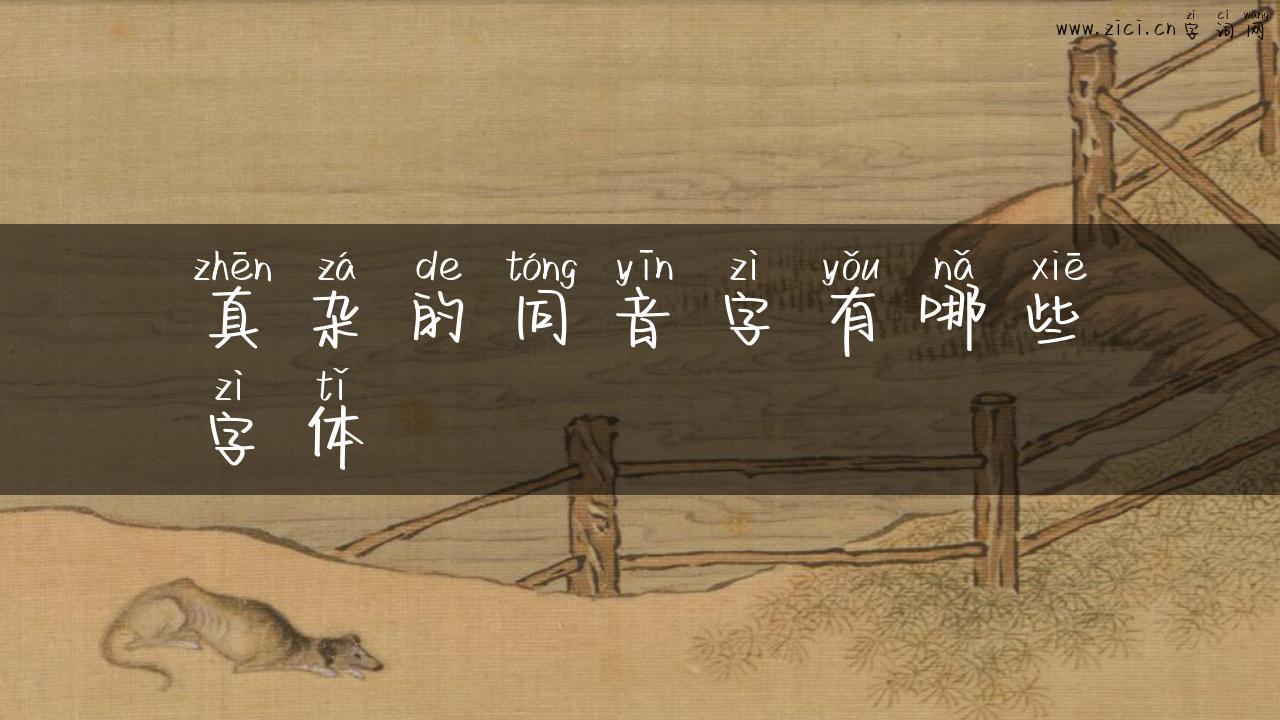 zi ci wang
www.zici.cn 字词网
zhēn zá de tóng yīn zì yǒu nǎ xiē
真杂的同音字有哪些
zì tǐ
字体